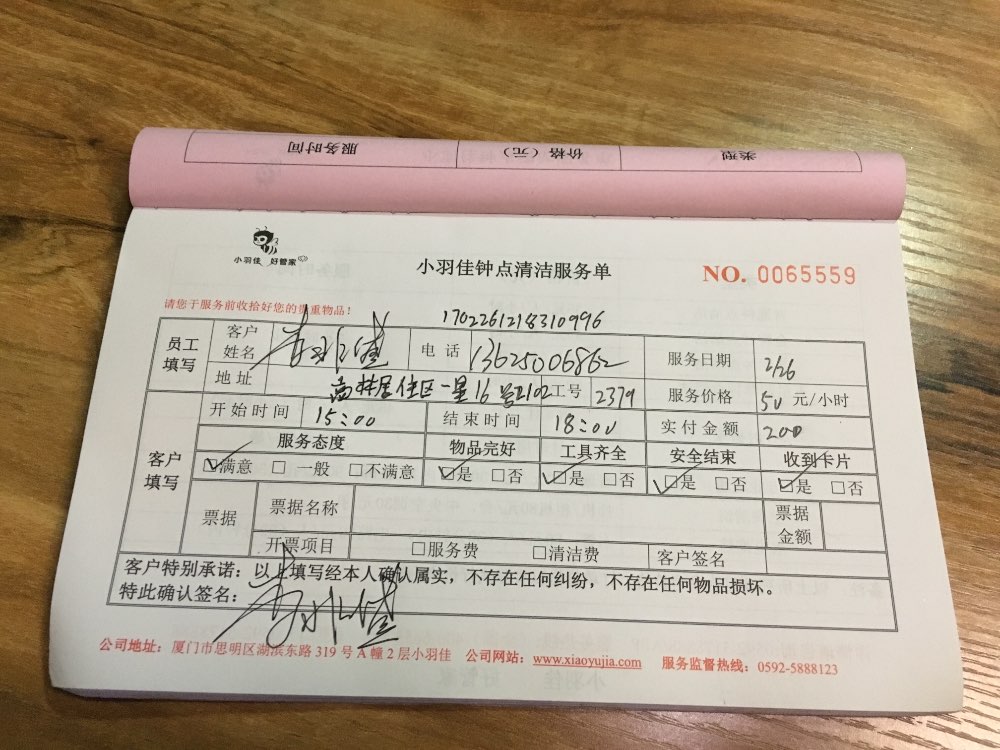 服务时间 价格（元） 类型
小羽佳 好管家
小羽佳钟点清洁服务单
NO. 0065559
请您于服务前收拾好您的贵重物品！
1702261218310996
员工填写 客户姓名 电话 13625006862 服务日期 2/26
地址 高林居住区一里16号2102 工号 2379 服务价格 50 元/小时
客户填写 开始时间 15:00 结束时间 18:00 实付金额 200
服务态度 物品完好 工具齐全 安全结束 收到卡片
☑满意 □一般 □不满意 ☑是 □否 ☑是 □否 ☑是 □否 ☑是 □否
票据 票据名称 票据金额
开票项目 □服务费 □清洁费 客户签名
客户特别承诺：以上填写经本人确认属实，不存在任何纠纷，不存在任何物品损坏。
特此确认签名：
公司地址：厦门市思明区湖滨东路 319 号 A 幢 2 层小羽佳 公司网站：www.xiaoyujia.com 服务监督热线：0592-5888123